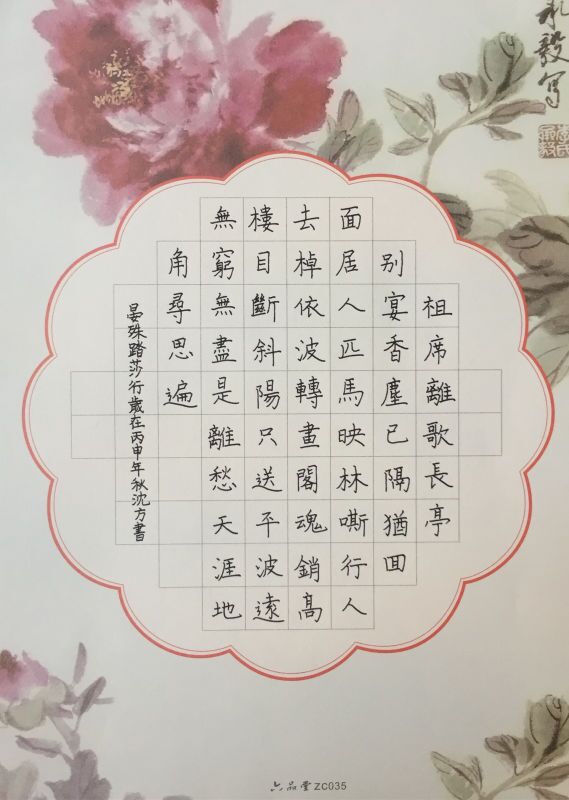 祖席離歌長亭
别宴香塵已隔猶囬
面居人匹馬映林嘶行人
去棹依波轉畫閣魂銷高
樓目斷斜陽只送平波遠
無窮無盡是離愁天涯地
角尋思遍
晏殊踏莎行歲在丙申年秋沈方書
六品堂 ZC035